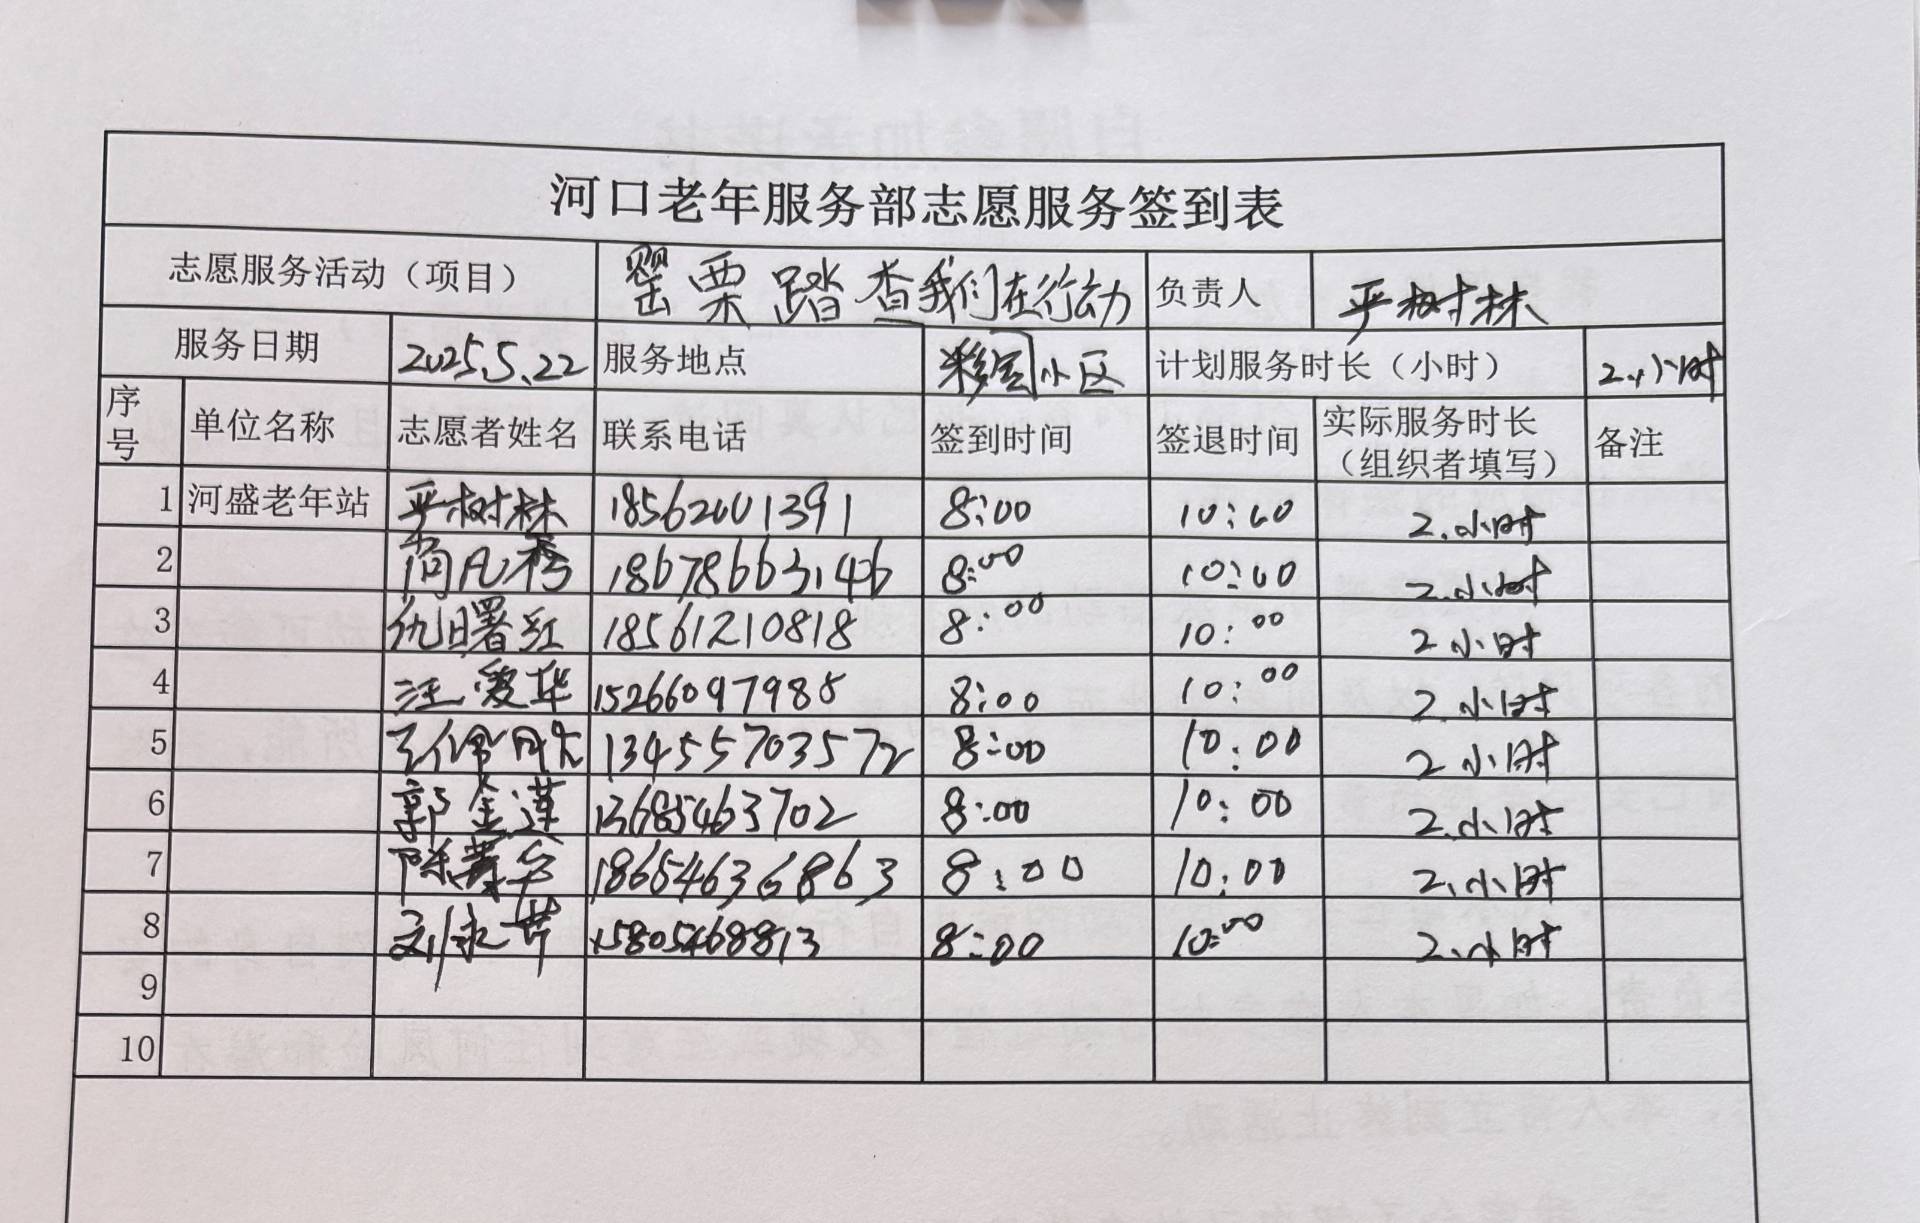 河口老年服务部志愿服务签到表
志愿服务活动（项目） 罂粟踏查我们在行动 负责人 严树林
服务日期 2025.5.22 服务地点 小区 计划服务时长（小时） 2.小时
序号 单位名称 志愿者姓名 联系电话 签到时间 签退时间 实际服务时长（组织者填写） 备注
1 河盛老年站 严树林 18562001391 8:00 10:00 2.小时
2 尚凡秀 18678663146 8:00 10:00 2.小时
3 仇曙红 18561210818 8:00 10:00 2小时
4 汪爱华 15266097985 8:00 10:00 2.小时
5 13455703572 8:00 10:00 2小时
6 郭金莲 13685463702 8:00 10:00 2.小时
7 18654636863 8:00 10:00 2.小时
8 刘永芹 15805468813 8:00 10:00 2.小时
9
10